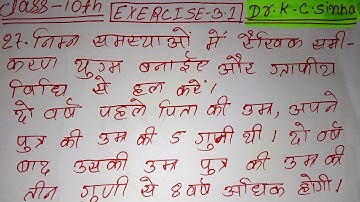 Class-10th EXERCISE-3.1 Dr. K.C. Sinha
27. निम्न समस्याओं में रैखिक समी-
करण युग्म बनाईए और ग्राफीय
विधि से हल करें।
दो वर्ष पहले पिता की उम्र, अपने
पुत्र की उम्र की 5 गुनी थी। दो वर्ष
बाद उसकी उम्र पुत्र की उम्र की
तीन गुणी से 8 वर्ष अधिक होगी।